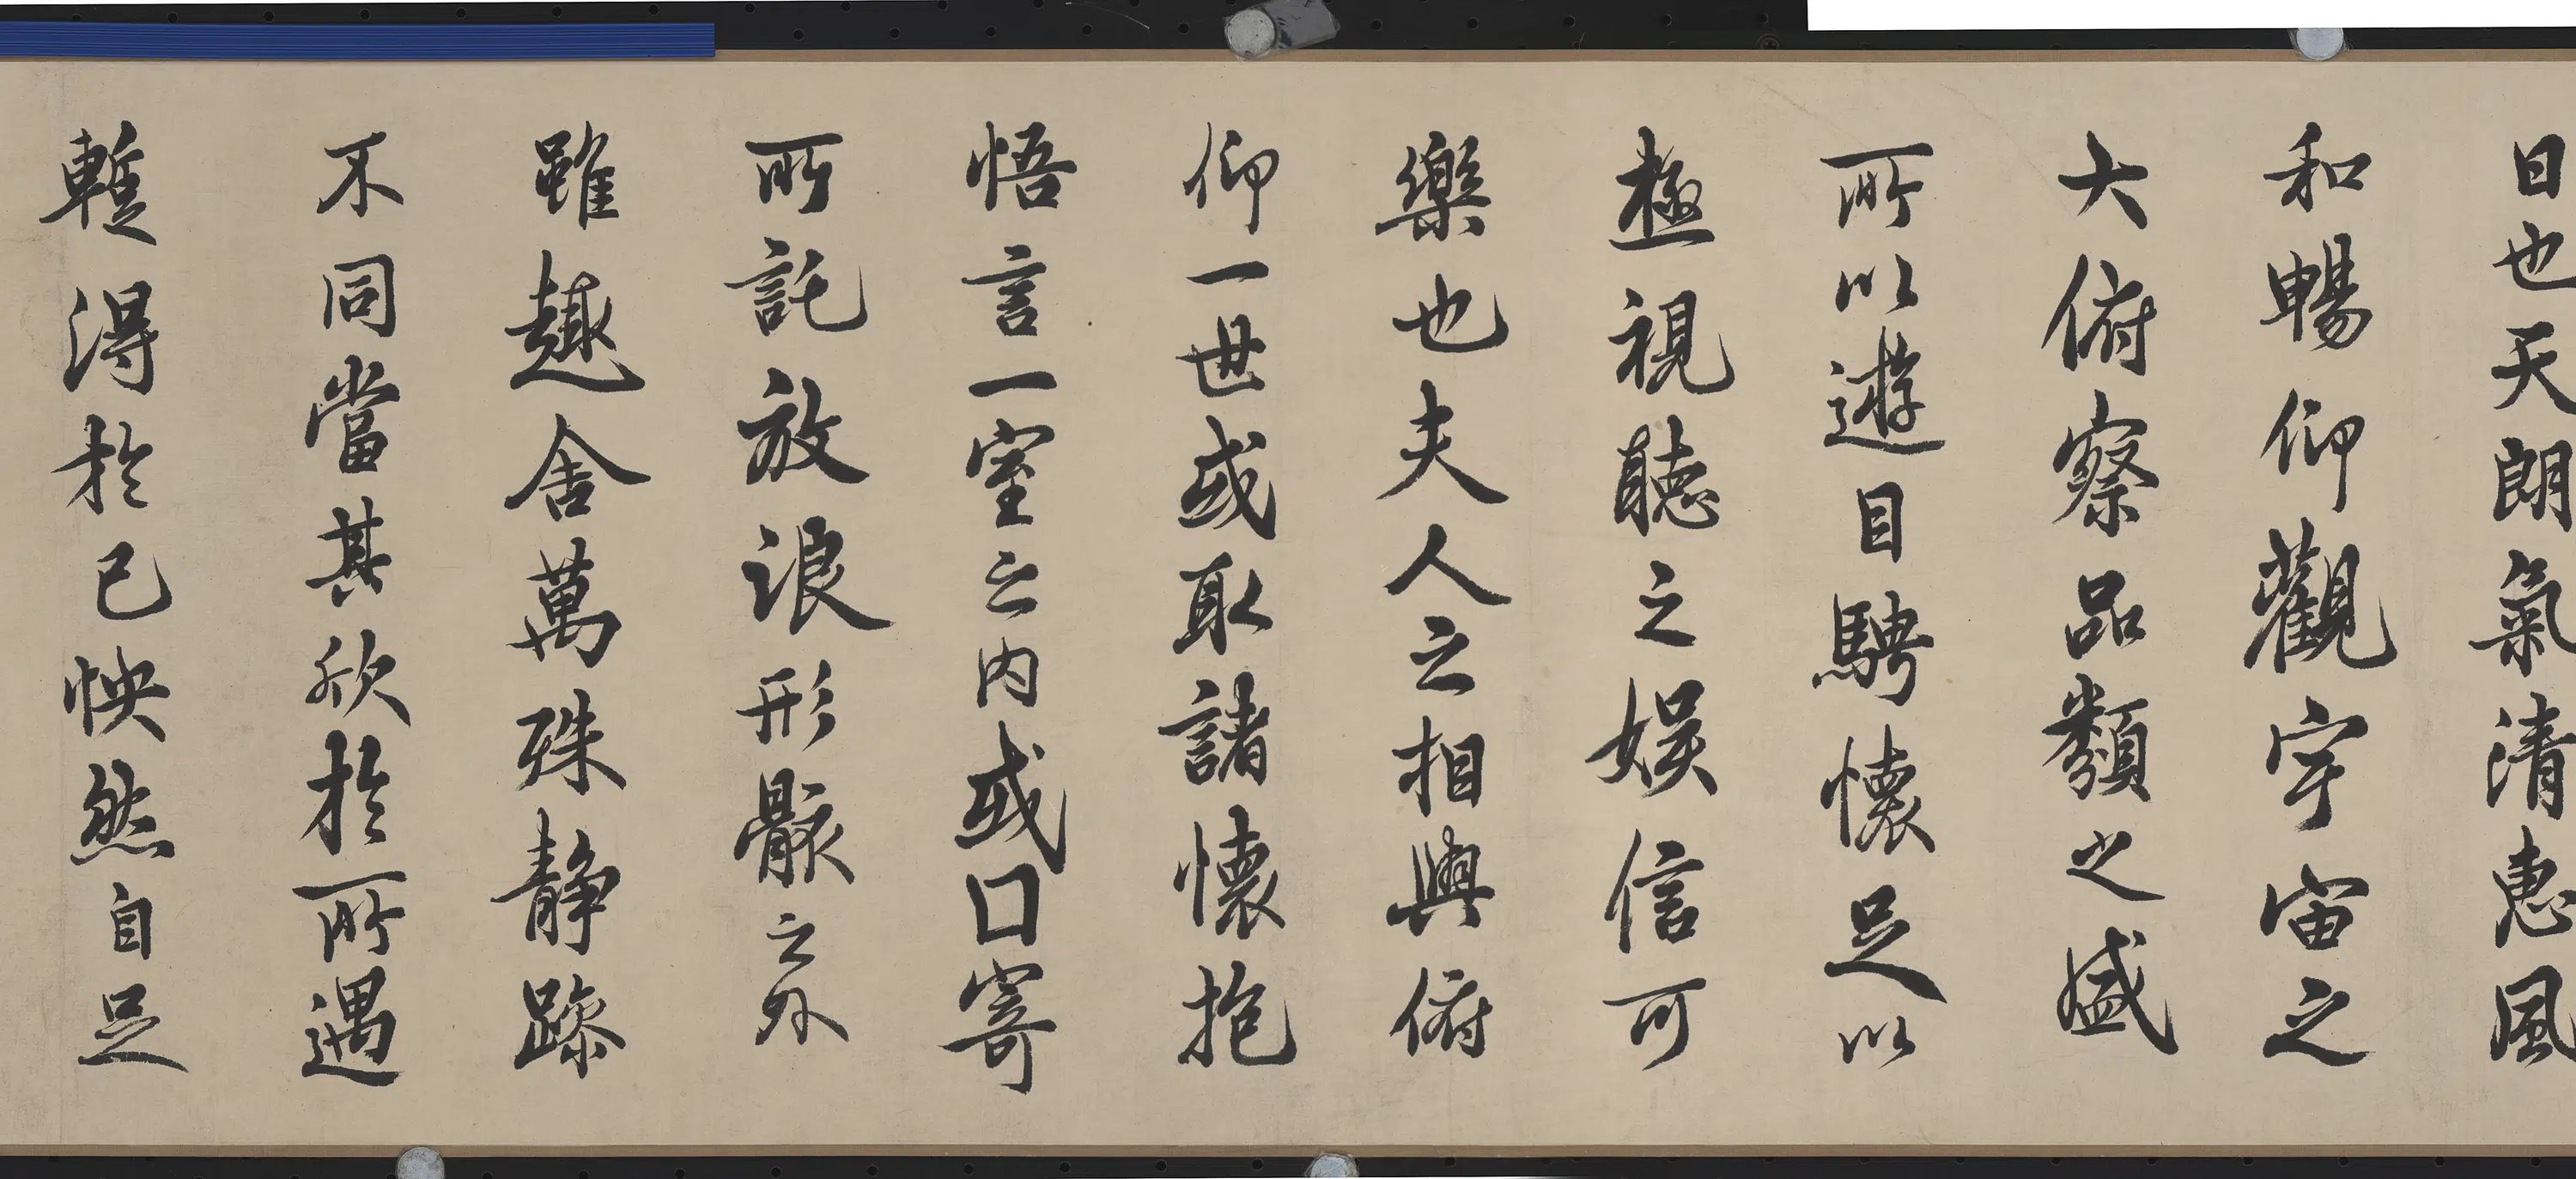 日也天朗氣清惠風
和暢仰觀宇宙之
大俯察品類之盛
所以遊目騁懷足以
極視聽之娛信可
樂也夫人之相與俯
仰一世或取諸懷抱
悟言一室之内或口寄
所託放浪形骸之外
雖趣舍萬殊静躁
不同當其欣於所遇
暫得於己怏然自足